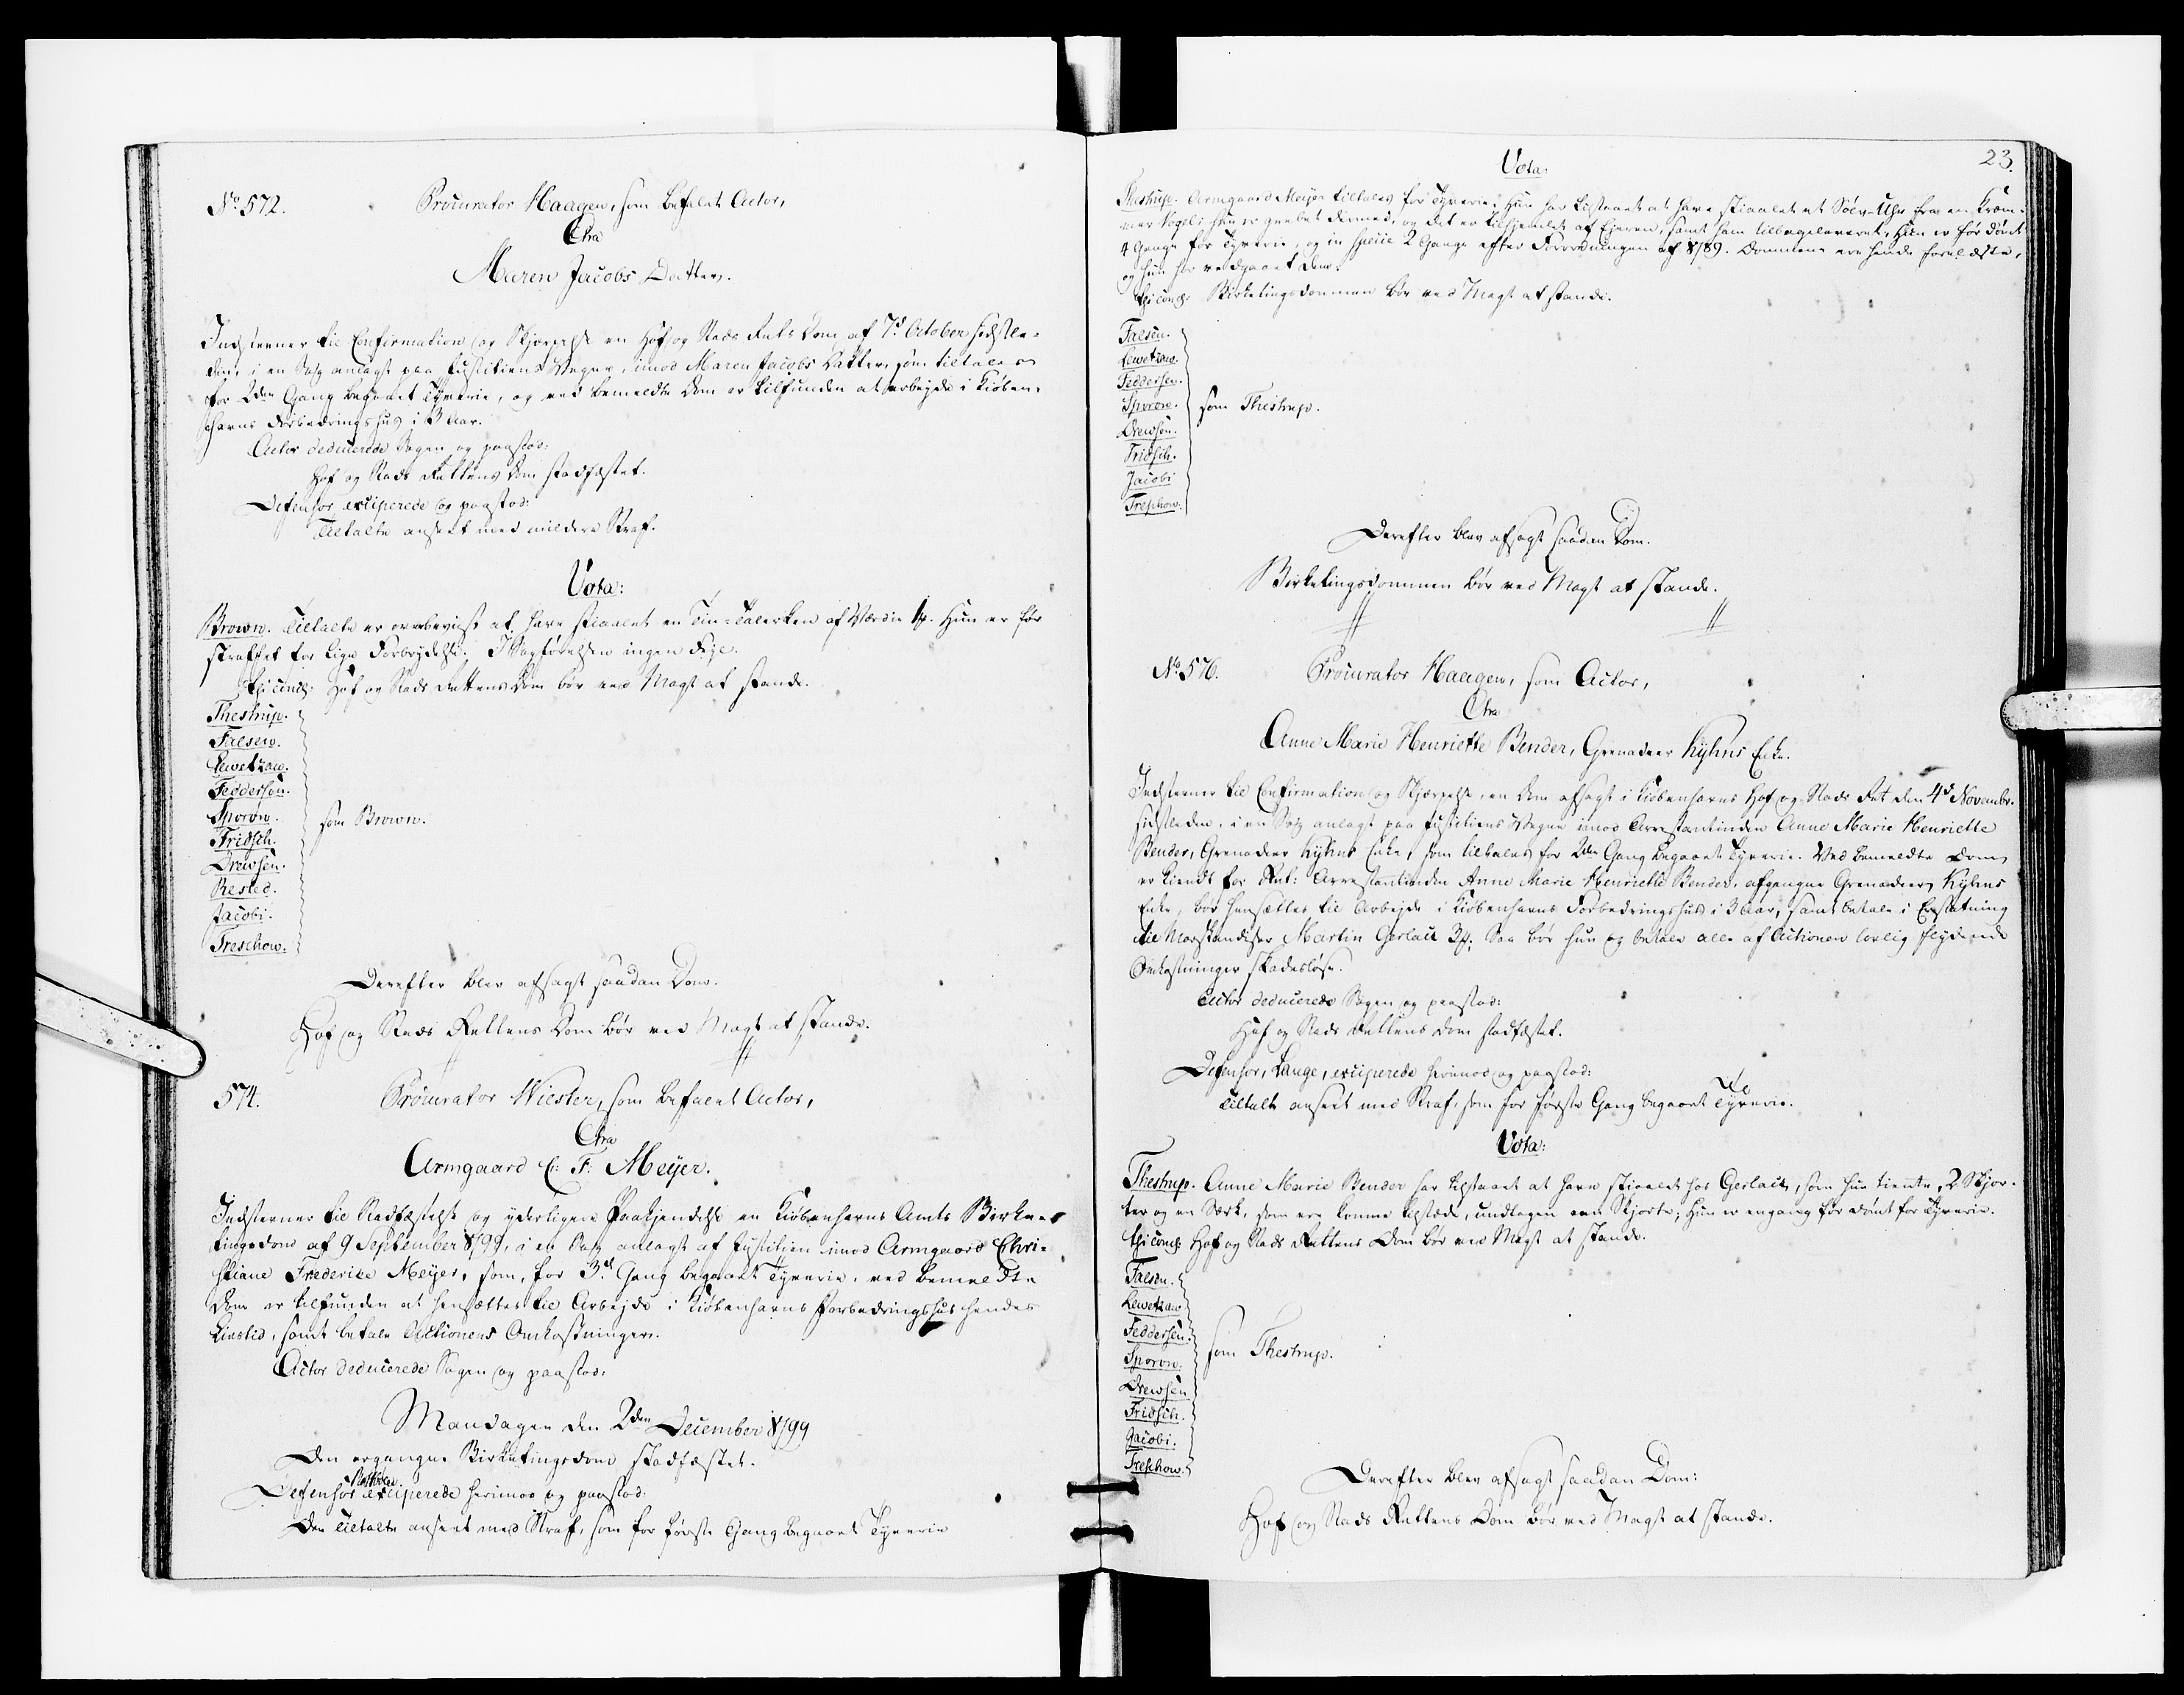 No. 572.
Procurator Haagen, som befalet Actor,
Ctra
Maren Jacobs Datter.
Indstevner til Confirmation og Skjærpelse en Hof og Stads Rets Dom af 7d October sidstle-
den, i en Sag anlagt paa Justitiens Vegne, imod Maren Jacobs Datter, som tiltales
for 2den Gang begaaet Tyverie, og ved bemeldte Dom er tilfunden at arbeyde i Kiøben-
havns Forbedringshus i 3 Aar.
Actor deducerede Sagen og paastod:
Hof og Stads Rettens Dom stadfæstet.
Defensor exciperede og paastod:
Tiltalte anseet med mildere Straf.
Vota:
Brown. Tiltalte er overbeviist at have stiaalet en Tin-Talerken af Værdie Hun er før
straffet for lige Forbrydelse. I Sagførelsen ingen Feyl.
thi concl: Hof og Stads Rettens Dom bør ved Magt at stande.
Thestrup.
Falsen.
Lewetzaw.
Feddersen.
Sporon.
som Brown.
Fridsch.
Drewsen.
Rested.
Jacobi.
Treschow.
Derefter blev afsagt saadan Dom.
Hof og Stads Rettens Dom bør ved Magt at stande.
574.
Procurator Wiester, som befalet Actor,
Ctra
Armgaard C: F: Meyer.
Indstevner til Stadfæstelse og yderligere Paakjendelse en Kiøbenhavns Amts Birke-
tingsdom af 9 September 1799, i en Sag anlagt af Justitien imod Armgaard Chri-
stiane Frederike Meyer, som, for 3d Gang begaaet Tyverie, ved bemeldte
Dom er tilfunden at hensættes til Arbejde i Kiøbenhavns Forbedringshus hendes
Livstid, samt betale Actionens Omkostninger.
Actor deducerede Sagen og paastod:
Mandagen den 2den December 1799
Den ergangne Birketingsdom stadfæstet.
Defensor exciperede herimod og paastod:
Den Tiltalte anseet med Straf, som for første Gang begaaet Tyverie
23.
Vota.
Thestrup. Armgaard Meyer tiltales for Tyverie; Hun har tilstaaet at have stiaalet et Sølv-Uhr fra en Kræm-
mer Vogel; Hun er grebet dermed, og det er tilhjemlet af Ejeren, samt ham tilbageleveret. Hun er før dømt
4 Gange for Tyverie, og in specie 2 Gange efter Forordningen af 1789. Dommene ere hende forelæste,
og hun har vedgaaet dem.
thi concl: Birketingsdommen bør ved Magt at stande.
Falsen.
Lewetzaw.
Feddersen.
Sporon.
som Thestrup.
Drewsen.
Fridsch.
Jacobi
Treschow.
Derefter blev afsagt saadan Dom.
Birketingsdommen bør ved Magt at stande.
No. 576.
Procurator Haagen, som Actor,
Ctra
Anne Marie Henriette Bender, Grenadeer Kyhns Enke.
Indstevner til Confirmation og Skjærpelse, en Dom afsagt i Kiøbenhavns Hof og Stads Ret den 4d Novembr.
sidstleden, i en Sag anlagt paa Justitiens Vegne imod Arrestantinden Anne Marie Henriette
Bender, Grenadeer Kyhns Enke, som tiltales for 2den Gang begaaet Tyverie. Ved bemeldte Dom
er kiendt for Ret: Arrestantinden Anne Marie Henriette Bender, afgangne Grenadeer Kyhns
Enke, bør hensættes til Arbejde i Kiøbenhavns Forbedringshus i 3 Aar, samt betale i Erstatning
til Marskandiser Martin Gerlach Saa bør hun og betale alle af Actionen lovlig flydende
Omkostninger skadesløse.
Actor deducerede Sagen og paastod:
Hof og Stads Rettens Dom stadfæstet.
Defensor, Lange, exciperede herimod og paastod:
Tiltalte anseet med Straf, som for første Gang begaaet Tyverie.
Vota:
Thestrup. Anne Marie Bender har tilstaaet at have stiaalet hos Gerlach, som hun tiente, 2 Skjor-
ter og en Særk, som ere komne tilstæde, undtagen een Skjorte; Hun er engang før dømt for Tyverie.
thi concl: Hof og Stads Rettens Dom bør ved Magt at stande.
Falsen.
Lewetzaw
Feddersen.
Sporon.
som Thestrup.
Drewsen
Fridsch.
Jacobi.
Treschow.
Derefter blev afsagt saadan Dom:
Hof og Stads Rettens Dom bør ved Magt at stande.